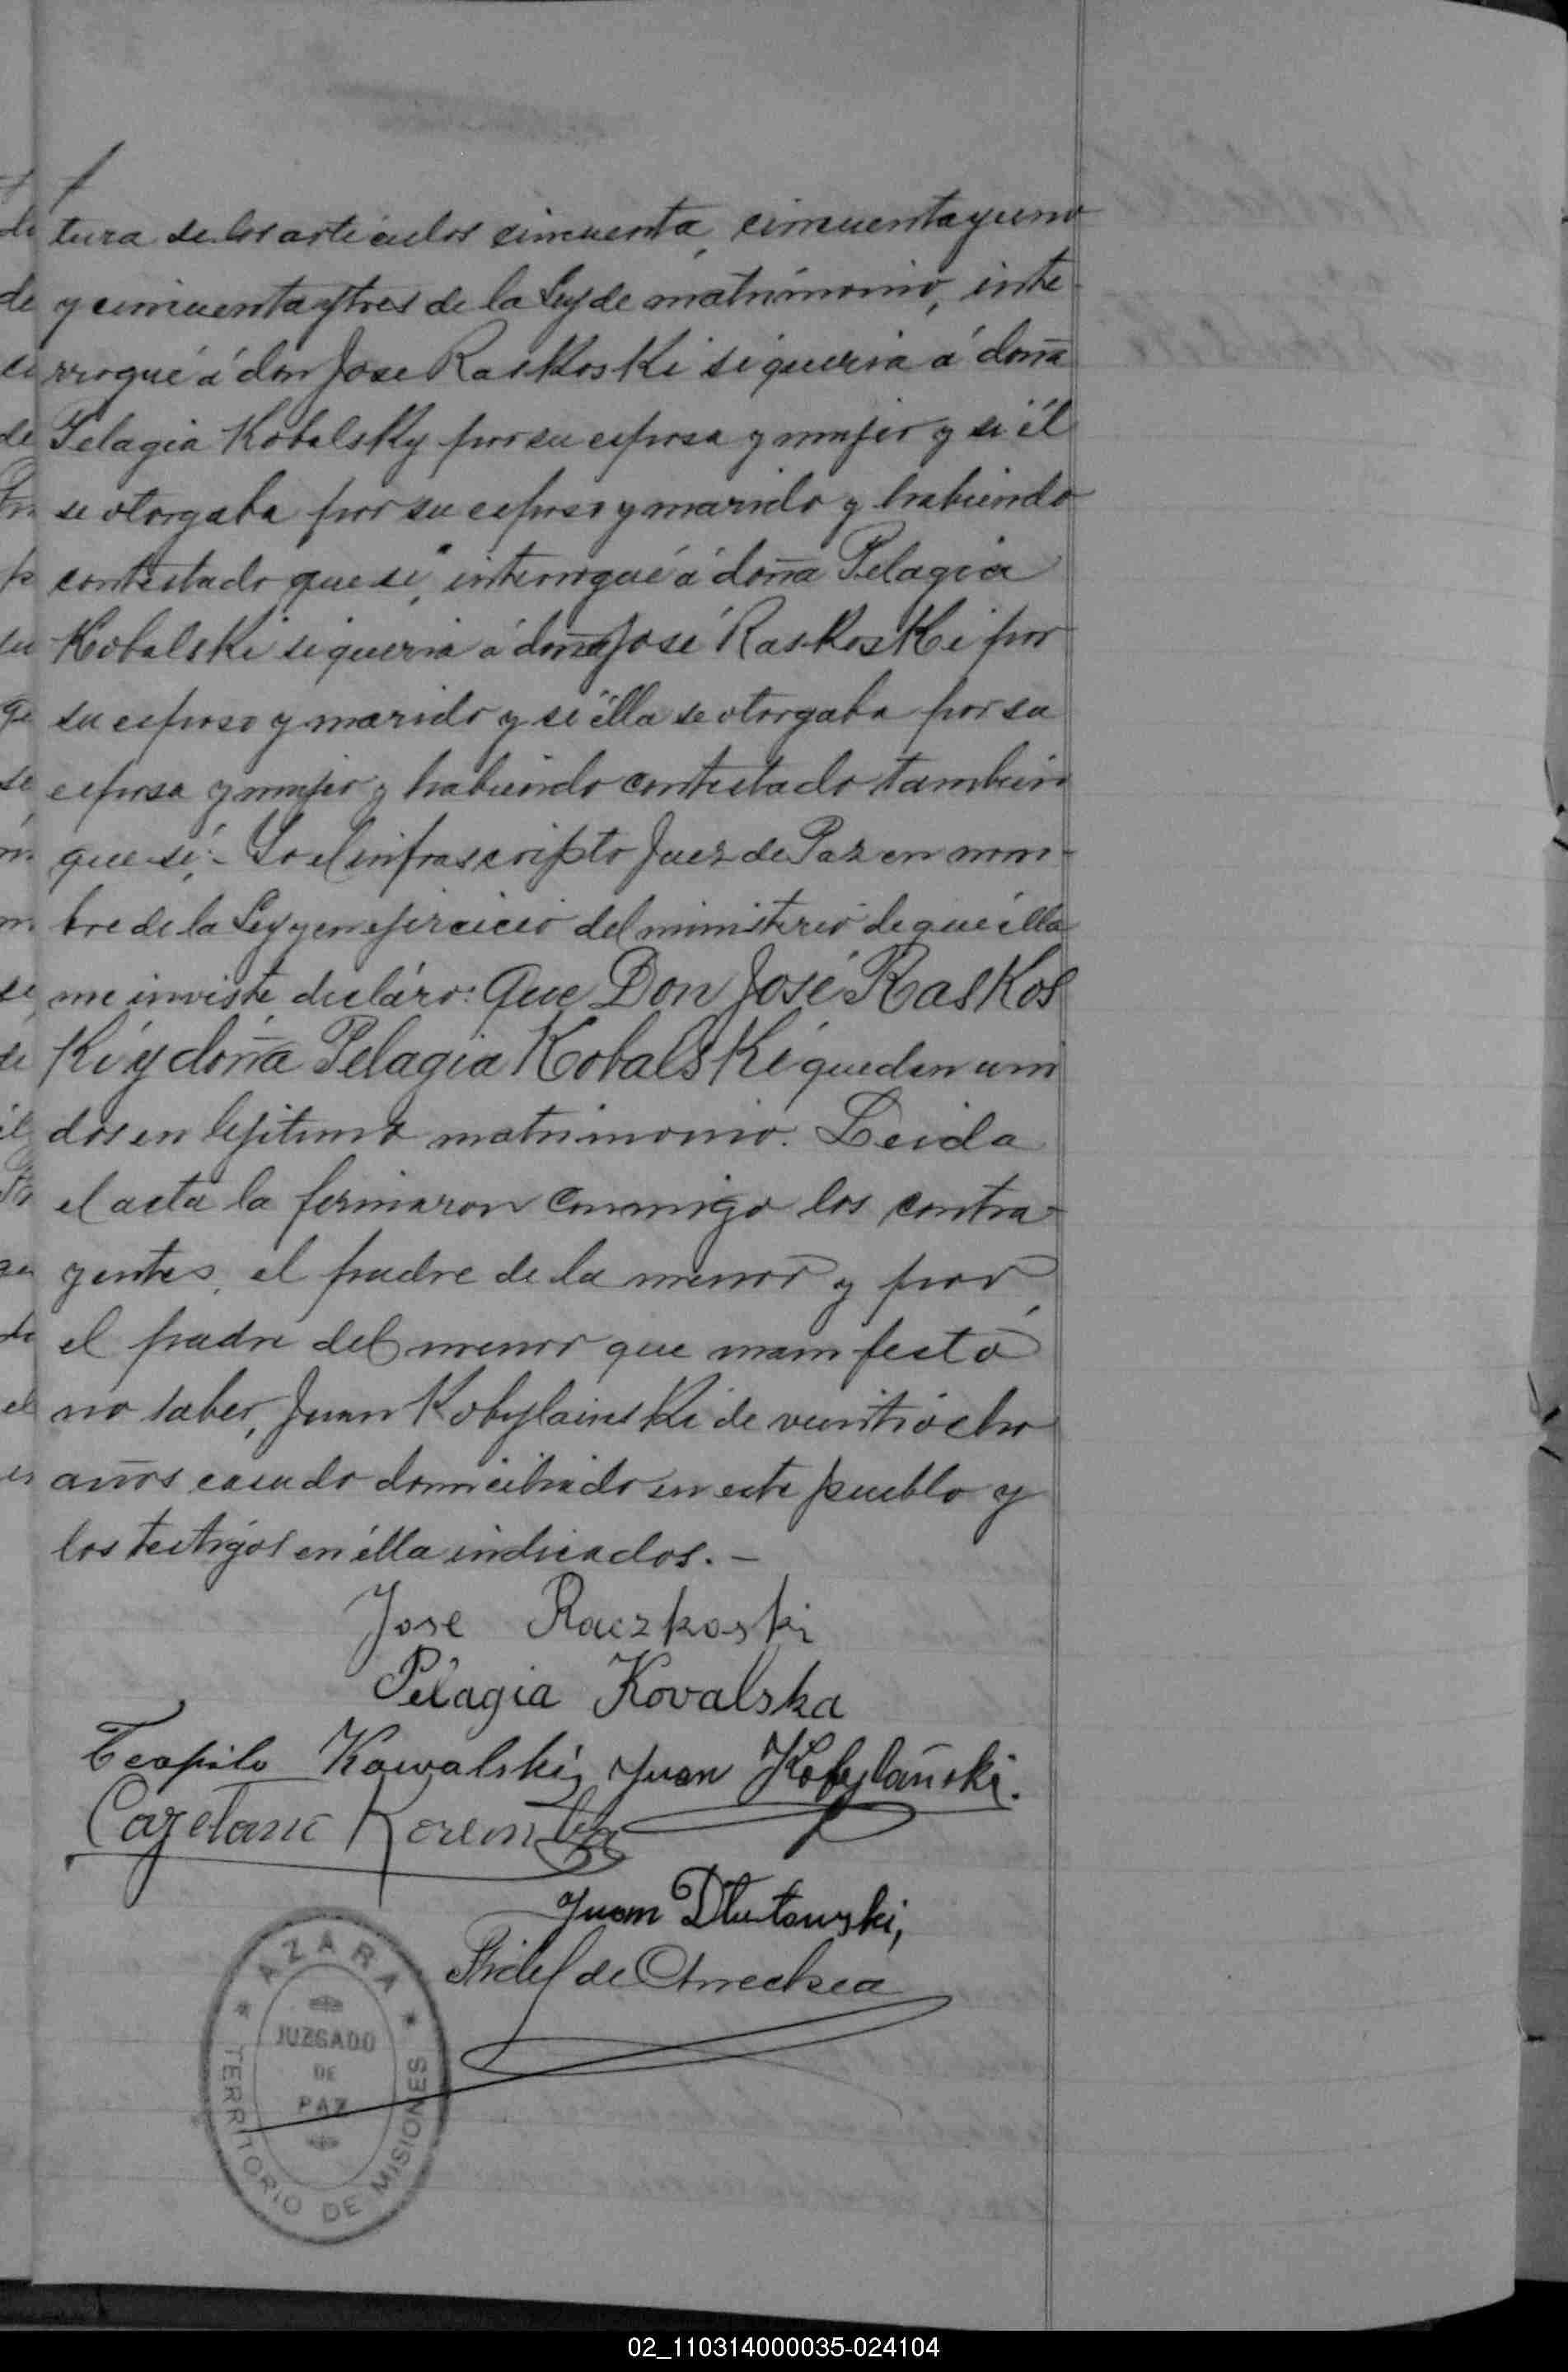 tura de los articulos cincuenta, cincuenta y uno
y cincuenta y tres de la Ley de matrimonio, inte-
rrogué á don Jose Raskoski si queria á doña
Pelagia Kobalsky por su esposa y mujer y si él
se otorgaba por su esposo y marido y habiendo
contestado que si, interrogué á doña Pelagia
Kobalski si queria á doña José Raskoski por
su esposo y marido y si élla se otorgaba por su
esposa y mujer y habiendo contestado tambien
que si; - Yo el infrascripto Juez de Paz en nom-
bre de la Ley y en ejercicio del ministerio de que élla
me inviste, decláro: Que Don José Raskos
Ki y doña Pelagia Kobalski quedan uni
dos en lejitimo matrimonio. Leida
el acta la firmaron conmigo los contra-
yentes, el padre de la menor y por
el padre del menor que manifestó
no saber, Juan Kobylainski de veintiocho
años casado domiciliado en este pueblo y
los testigos en élla indicados. -
Jose Raczkoski
Pélagia Kovalska
Teofilo Kowalski, Juan Kobylański.
Cayetano Koremba
Juan Dlutowski,
Fidel de Arrechea
AZARA
JUZGADO
DE
PAZ
TERRITORIO DE MISIONES
02_110314000035-024104